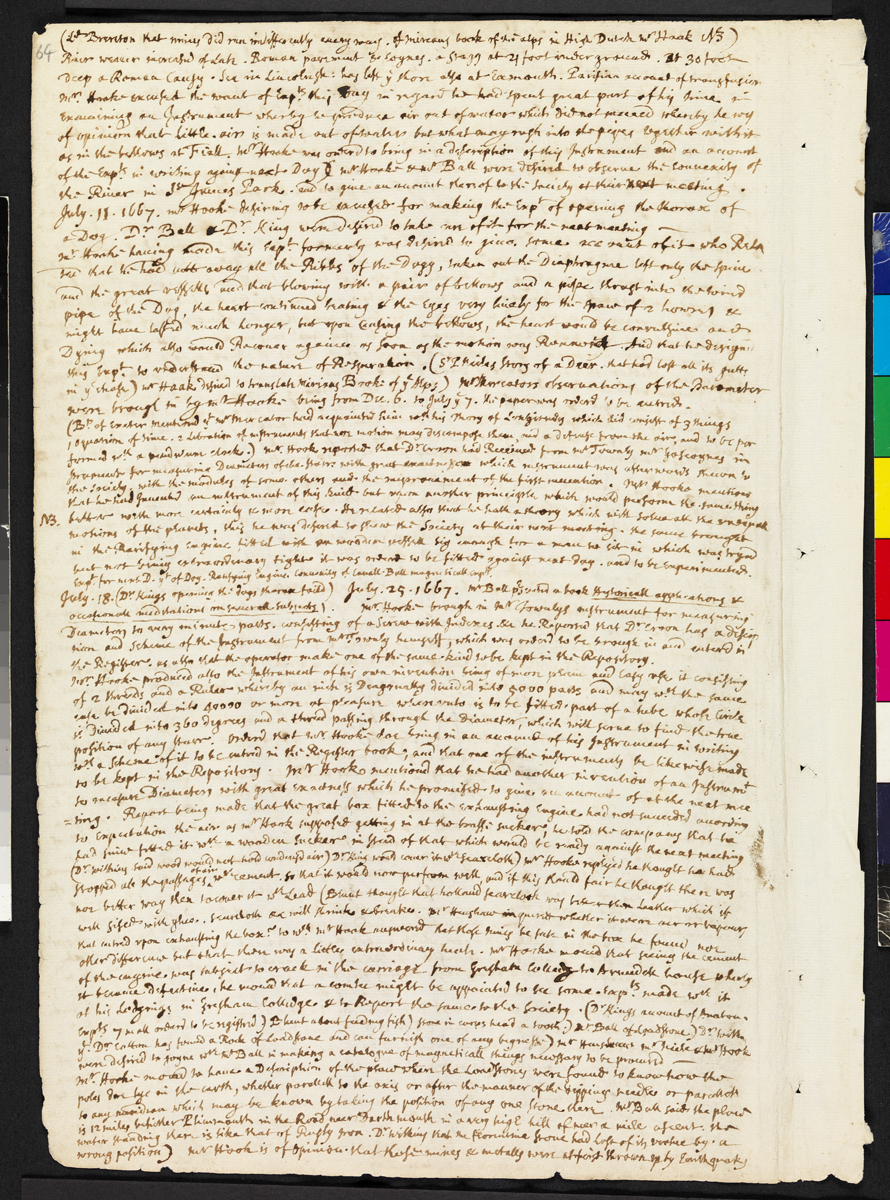 64
(Ld Brereton that mines did run indifferently every way. of mireous book of the alps in High Dutch mr Haak NB)
River weaver increased of late. Roman pavement & Coynes. a stagg at 21 foot under ground. At 30 foot
deep a Roman Causy. Sea in Lincolnsh: has left ye shore also at Exmouth. Parisian account of transfusion
mr. Hooke excused the want of Expts this Day in regard he had spent great part of his time in
Examining an Instrument whereby to produce air out of water which did not succeed whereby he ws
of opinion that little air is made out of water but what may rush into the pipes together with it
as in the bellows at Tivoli. mr Hooke was ordd to bring in a description of this Instrument and an account
of the Expts in writing against next Day mr Hooke & mr Ball were desird to observe the convenity of
the River in St Jameses Park. and to give an account therof to the Society at their next meeting.
July. 11. 1667. mr Hooke desiring to be excused for making the Expt of opening the thorax of
a Dog. Dr Ball & Dr. King were desird to take care of it for the next meeting
mr Hooke having made this Expt formerly was desird to give some account of it who Rela
ted that he had cutt away all the Ribbs of the Dogg, taken out the Diaphragme left only the spine
and the great vessells and that blowing with a pair of bellows and a pipe thrust into the wind
pipe of the Dog, the heart continued beating & the Eyes very lively for the space of 2 howers &
might have lasted much longer, but upon ceasing the bellows, the heart would be convulsive and
Dying which also would Recover againe as soon as the motion was Renewed. And that he designd
this Expt to understand the nature of Respiration. (Sr P Neiles story of a Deer that had lost all its gutts
in ye chase) mr Haak desird to translate Mireous Booke of ye Alps) mr Mercators observations of the Barometer
were brough in by mr Hooke being from Dec. 6. to July ye 7. the paper was orderd to be entred.
(Bp. of Exeter mentiond yt mr Mercator had acquainted him wth his Theory of Longitude which did consist of 3 things
1. equation of time. 2 Libration of instruments that noe motion may discompose them, and a defence from the air, and to be per
formed wth a pendulum clock.) mr. Hook reported that Dr Croon had Received from mr Townly mr Gascoynes in
strument for measuring Diameters of the starrs with great exactnesse which instrument was afterwards shewn to
the Society, with the modules of some others and the improvement of the first invention. Mr Hooke mentiond
that he had Invented an instrument of this kind but upon another principle which would performe the same thing
NB. better with more certainty & more ease. He related also that he hath a theory which will solve all the unequall
motions of the planets, this he was desired to shew the Society at their next meeting. he also brought
in the Rarifying Engine fitted with an wooden vessell big enough for a man to sit in which was tryd
but not being extraordinary tight it was orderd to be fitted against next day. and to be Experimented.
Expt for next D. yt of Dog. Rarifying Engine. Convenity of Canall. Ball magneticall expt.
July. 18. (Dr. Kings opening the dogs thorax faild) July. 25. 1667. mr Ball psented a book Historicall applications &
occasionall meditations on severall subjects). mr. Hooke brough in mr Townlys instrument for measuring
Diameters to very minute parts. consisting of a screw with Indexes &c he Reported that Dr Croon has a descrip
tion and scheme of the Instrument from mr Townly himself, which was orderd to be brough in and enterd in
the Register. as also that the operator make one of the same kind to be kept in the Repository.
mr. Hooke produced also the Instrument of his own invention being of more plain and easy use it consisting
of 2 threds and a Ruler whereby an inch is Diagonally divided into 5000 parts and may wth the same
ease be divided into 40000 or more at pleasure whereunto is to be fitted part of a tube whose circle
is Divided into 360 degrees and a thred passing through the diameter, which will serve to find the true
position of any starr. orderd that mr. Hooke doe bring in an account of his Instrument in writing
wth a scheme of it to be entred in the Register book, and that one of the instruments be likewise made
to be kept in the Repository. mr Hook mentiond that he had another invention of an Instrumt
to measure Diameters with great exactness which he promised to give an account of at the next mee
=ting. Report being made that the great box fitted to the Exhausting Engine had not succeeded according
to Expectation the air as mr Hook supposed getting in at the brasse sucker, he told the company that he
had since fitted it wth a wooden sucker in stead of that which would be ready against the next meeting
(Dr. Wilkins said wood would not hold condensd air) Dr King would cover it wth searcloth) mr Hooke replyed he thought he had
stopped all the passages of air wth cement. so that it would now perform well and if this should faile he thought there was
noe better way then to cover it wth Lead (Blunt thought that holland searcloth was better then Leather which if
well sized with glew. searcloth &c will shrink & breake. mr Henshaw inquird whether it were air or vapours
that entred upon exhausting the box to wch mr Hook answerd that those times he sate in the box he found noe
other difference but that there was a little extraordinary heate. mr Hooke moved that seeing the cement
of the engine was subject to crack in the carriage from Gresham Colledg to Arundell house wherby
it became defective, he moud that a comtee might be appointed to see some Expts made wth it
at his Lodgings in Gresham Colledge & to Report the same to the Society. (Dr Kings account of
Expts ordered to be registred) Blunt about feeding fish) stone in corps head a tooth.) mr Ball of Loadstone.) Dr Wilk
yt Dr. Cotton has found a Rock of Loadstone and can furnish one of any bignesse) mr Henshaw mr Neile & mr Hook
were desired to joyne wth mr Ball in making a catalogue of magneticall things necessary to be procured
mr. Hooke moved to have a Description of the place where the Loadstones were found to know how the
poles doe lye in the earth, whether parallell to the axis or after the manner of the dipping needles or parallell
to any meridian which may be known by taking the position of any one stone there. mr Ball said the place
is 12 miles behither Plimmouth in the Road neer Dartmouth in a very high hill of neer a mile ascent. the
water standing there is like that of Rusty Iron. Dr Wilkins that the Florentine stone had lost of its vertue by a
wrong position) mr Hook is of Opinion that those mines & metalls were at first thrown up by Earthquak